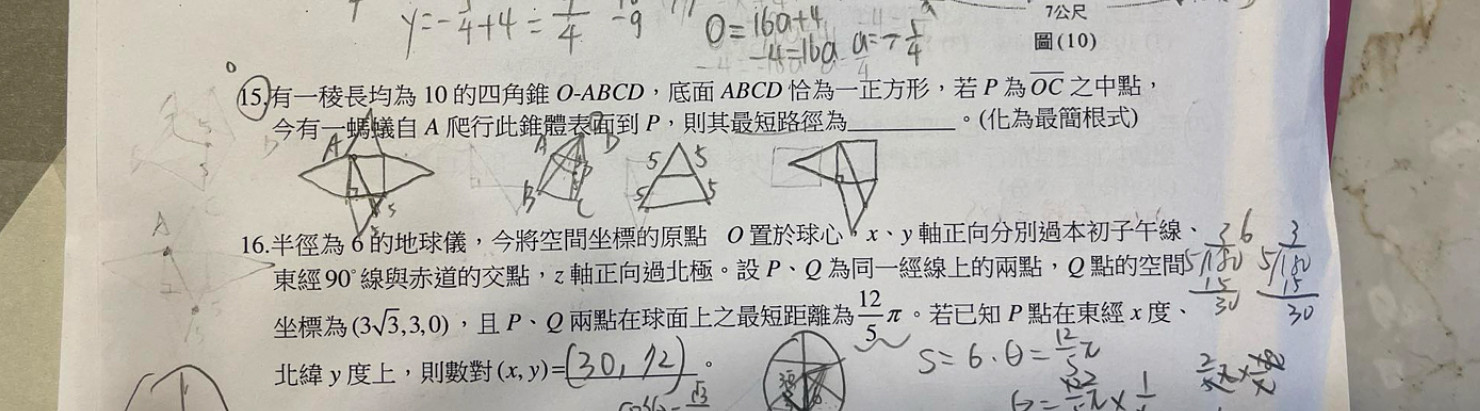 y=-3/4+4=1/4
-9
0=16a+4
-4=16a a=-1/4
7公尺
圖(10)
15.有一稜長均為 10 的四角錐 O-ABCD，底面 ABCD 恰為一正方形，若 P 為 OC 之中點，
今有一螞蟻自 A 爬行此錐體表面到 P，則其最短路徑為________。(化為最簡根式)
A
5
A D
B C
5 5
5 5
16.半徑為 6 的地球儀，今將空間坐標的原點 O 置於球心，x、y 軸正向分別過本初子午線、
東經 90° 線與赤道的交點，z 軸正向過北極。設 P、Q 為同一經線上的兩點，Q 點的空間
坐標為 (3√3,3,0)，且 P、Q 兩點在球面上之最短距離為 12/5 π。若已知 P 點在東經 x 度、
北緯 y 度上，則數對 (x, y)=(30, 72)。
36
5/180
15
30
3
5/180
15
30
A
S=6·θ=12/5π